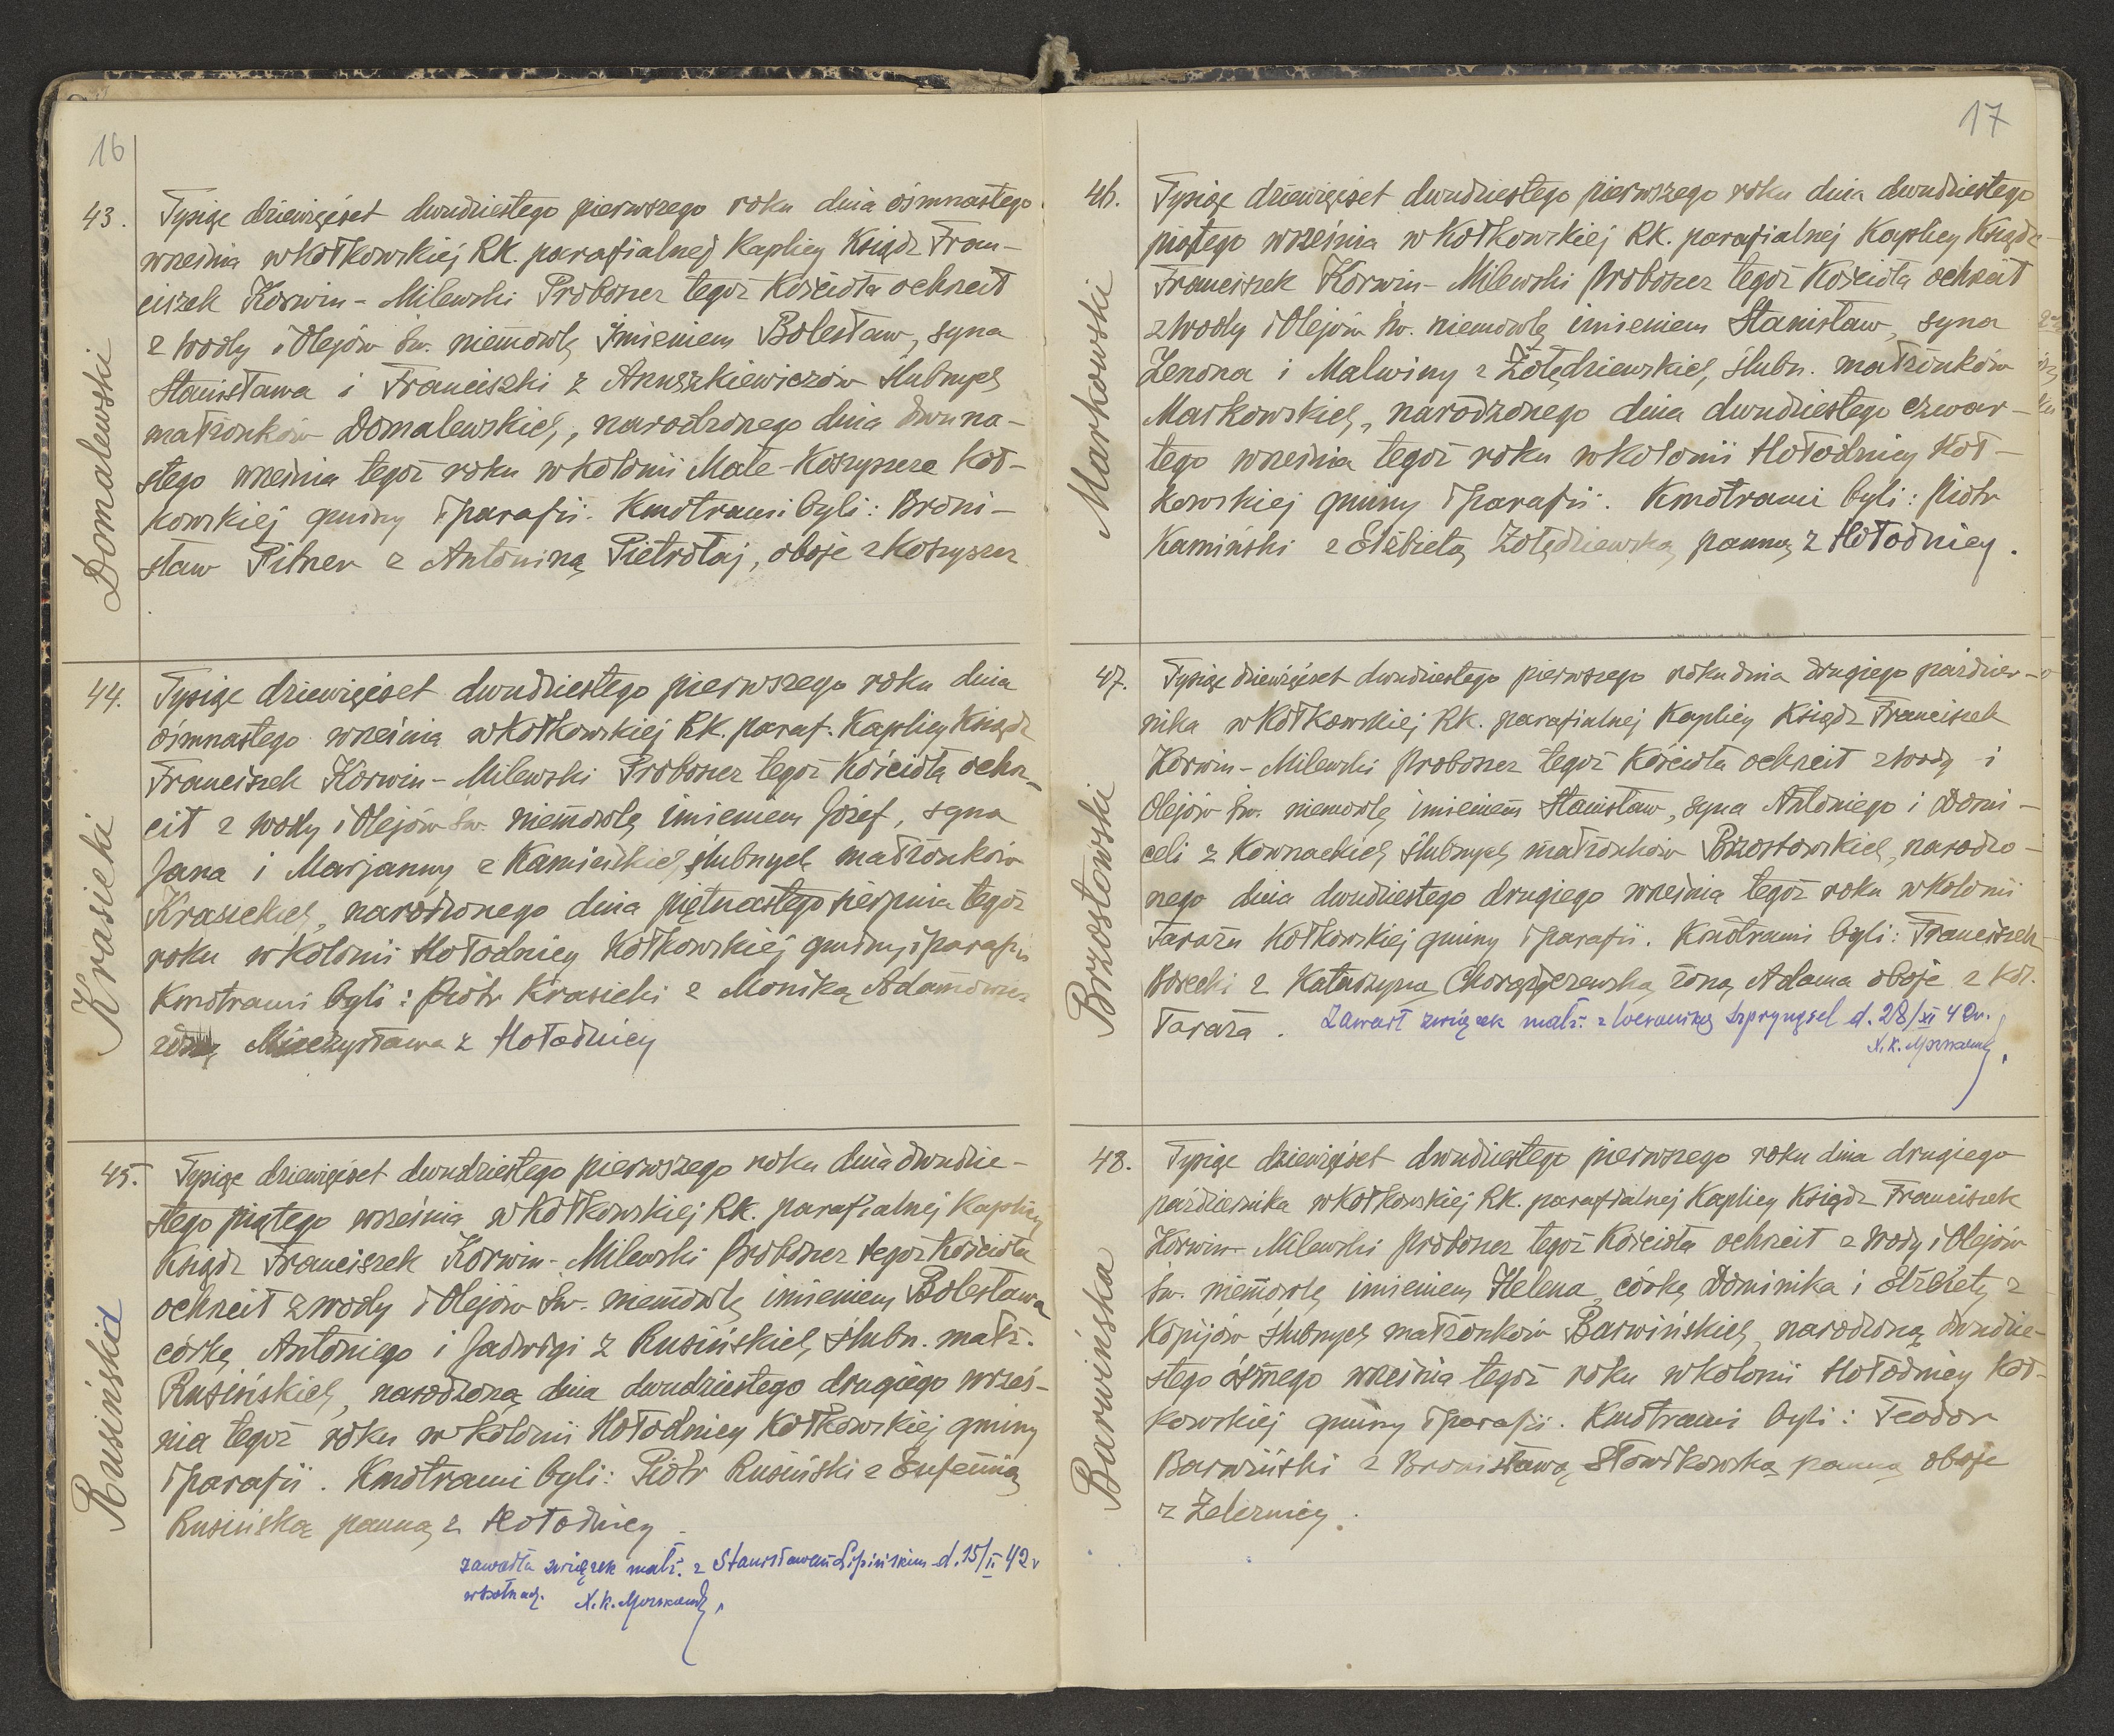 16
43.
Domalewski
Tysiąc dziewięćset dwudziestego pierwszego roku dnia ósmnastego
września w Kołkowskiej RK. parafialnej Kaplicy Ksiądz Fran-
ciszek Korwin-Milewski Proboszcz tegoż Kościoła ochrcił
z wody i Olejów św. niemowlę imieniem Bolesław, syna
Stanisława i Franciszki z Anuszkiewiczów ślubnych
małżonków Domalewskich, narodzonego dnia dwuna-
stego września tegoż roku w kolonii Małe-Koszyszcze Koł-
kowskiej gminy i parafii. Kmotrami byli: Broni-
sław Pitner z Antoniną Pietrołaj, oboje z Koszyszcz
44.
Krasicki
Tysiąc dziewięćset dwudziestego pierwszego roku dnia
ósmnastego września w Kołkowskiej RK. paraf. Kaplicy Ksiądz
Franciszek Korwin-Milewski Proboszcz tegoż Kościoła ochr-
cił z wody i Olejów św. niemowlę imieniem Józef, syna
Jana i Marjanny z Kamińskich, ślubnych małżonków
Krasickich, narodzonego dnia piętnastego sierpnia tegoż
roku w kolonii Hołodnicy Kołkowskiej gminy i parafii
Kmotrami byli: Piotr Krasicki z Moniką Adamowicz
żoną Mieczysława z Hołodnicy
45.
Rusińskia
Tysiąc dziewięćset dwudziestego pierwszego roku dnia dwudzie-
stego piątego września w Kołkowskiej RK. parafialnej Kaplicy
Ksiądz Franciszek Korwin-Milewski Proboszcz tegoż Kościoła
ochrcił z wody i Olejów św. niemowlę imieniem Bolesława
córkę Antoniego i Jadwigi z Rusińskich, ślubn. małż.
Rusińskich, narodzoną dnia dwudziestego drugiego wrześ-
nia tegoż roku w kolonii Hołodnicy Kołkowskiej gminy
i parafii. Kmotrami byli: Piotr Rusiński z Eufemią
Rusińską panną z Hołodnicy
zawarła związek małż. z Stanisławem Lipińskim d. 15/II 42 r
w Kołkach.
17
46.
Markowski
Tysiąc dziewięćset dwudziestego pierwszego roku dnia dwudziestego
piątego września w Kołkowskiej RK. parafialnej Kaplicy Ksiądz
Franciszek Korwin-Milewski Proboszcz tegoż Kościoła ochrcił
z wody i Olejów św. niemowlę imieniem Stanisław, syna
Zenona i Malwiny z Żołędziewskich, ślubn. małżonków
Markowskich, narodzonego dnia dwudziestego czwar-
tego września tegoż roku w kolonii Hołodnicy Koł-
kowskiej gminy i parafii. Kmotrami byli: Piotr
Kamiński z Elżbietą Żołędziewską panną z Hołodnicy.
47.
Brzostowski
Tysiąc dziewięćset dwudziestego pierwszego roku dnia drugiego paździer-
nika w Kołkowskiej RK. parafialnej Kaplicy Ksiądz Franciszek
Korwin-Milewski Proboszcz tegoż Kościoła ochrcił z wody i
Olejów św. niemowlę imieniem Stanisław, syna Antoniego i Domi-
celi z Kownackich, ślubnych małżonków Brzostowskich, narodzo-
nego dnia dwudziestego drugiego września tegoż roku w kolonii
Tarażu Kołkowskiej gminy i parafii. Kmotrami byli: Franciszek
Borecki z Katarzyną Chorążyczewską żoną Adama oboje z kol.
Taraża. Zawarł związek małż. z Weroniką Szpryngiel d. 28/XI 42r.
48.
Barwińska
Tysiąc dziewięćset dwudziestego pierwszego roku dnia drugiego
października w Kołkowskiej RK. parafialnej Kaplicy Ksiądz Franciszek
Korwin-Milewski Proboszcz tegoż Kościoła ochrcił z wody i Olejów
św. niemowlę imieniem Helena, córkę Dominika i Elżbiety z
Kopijów ślubnych małżonków Barwińskich, narodzoną dwudzie-
stego ósmego września tegoż roku w kolonii Hołodnicy Koł-
kowskiej gminy i parafii. Kmotrami byli: Teodor
Barwiński z Bronisławą Słowikowską panną oboje
z Żeleznicy.